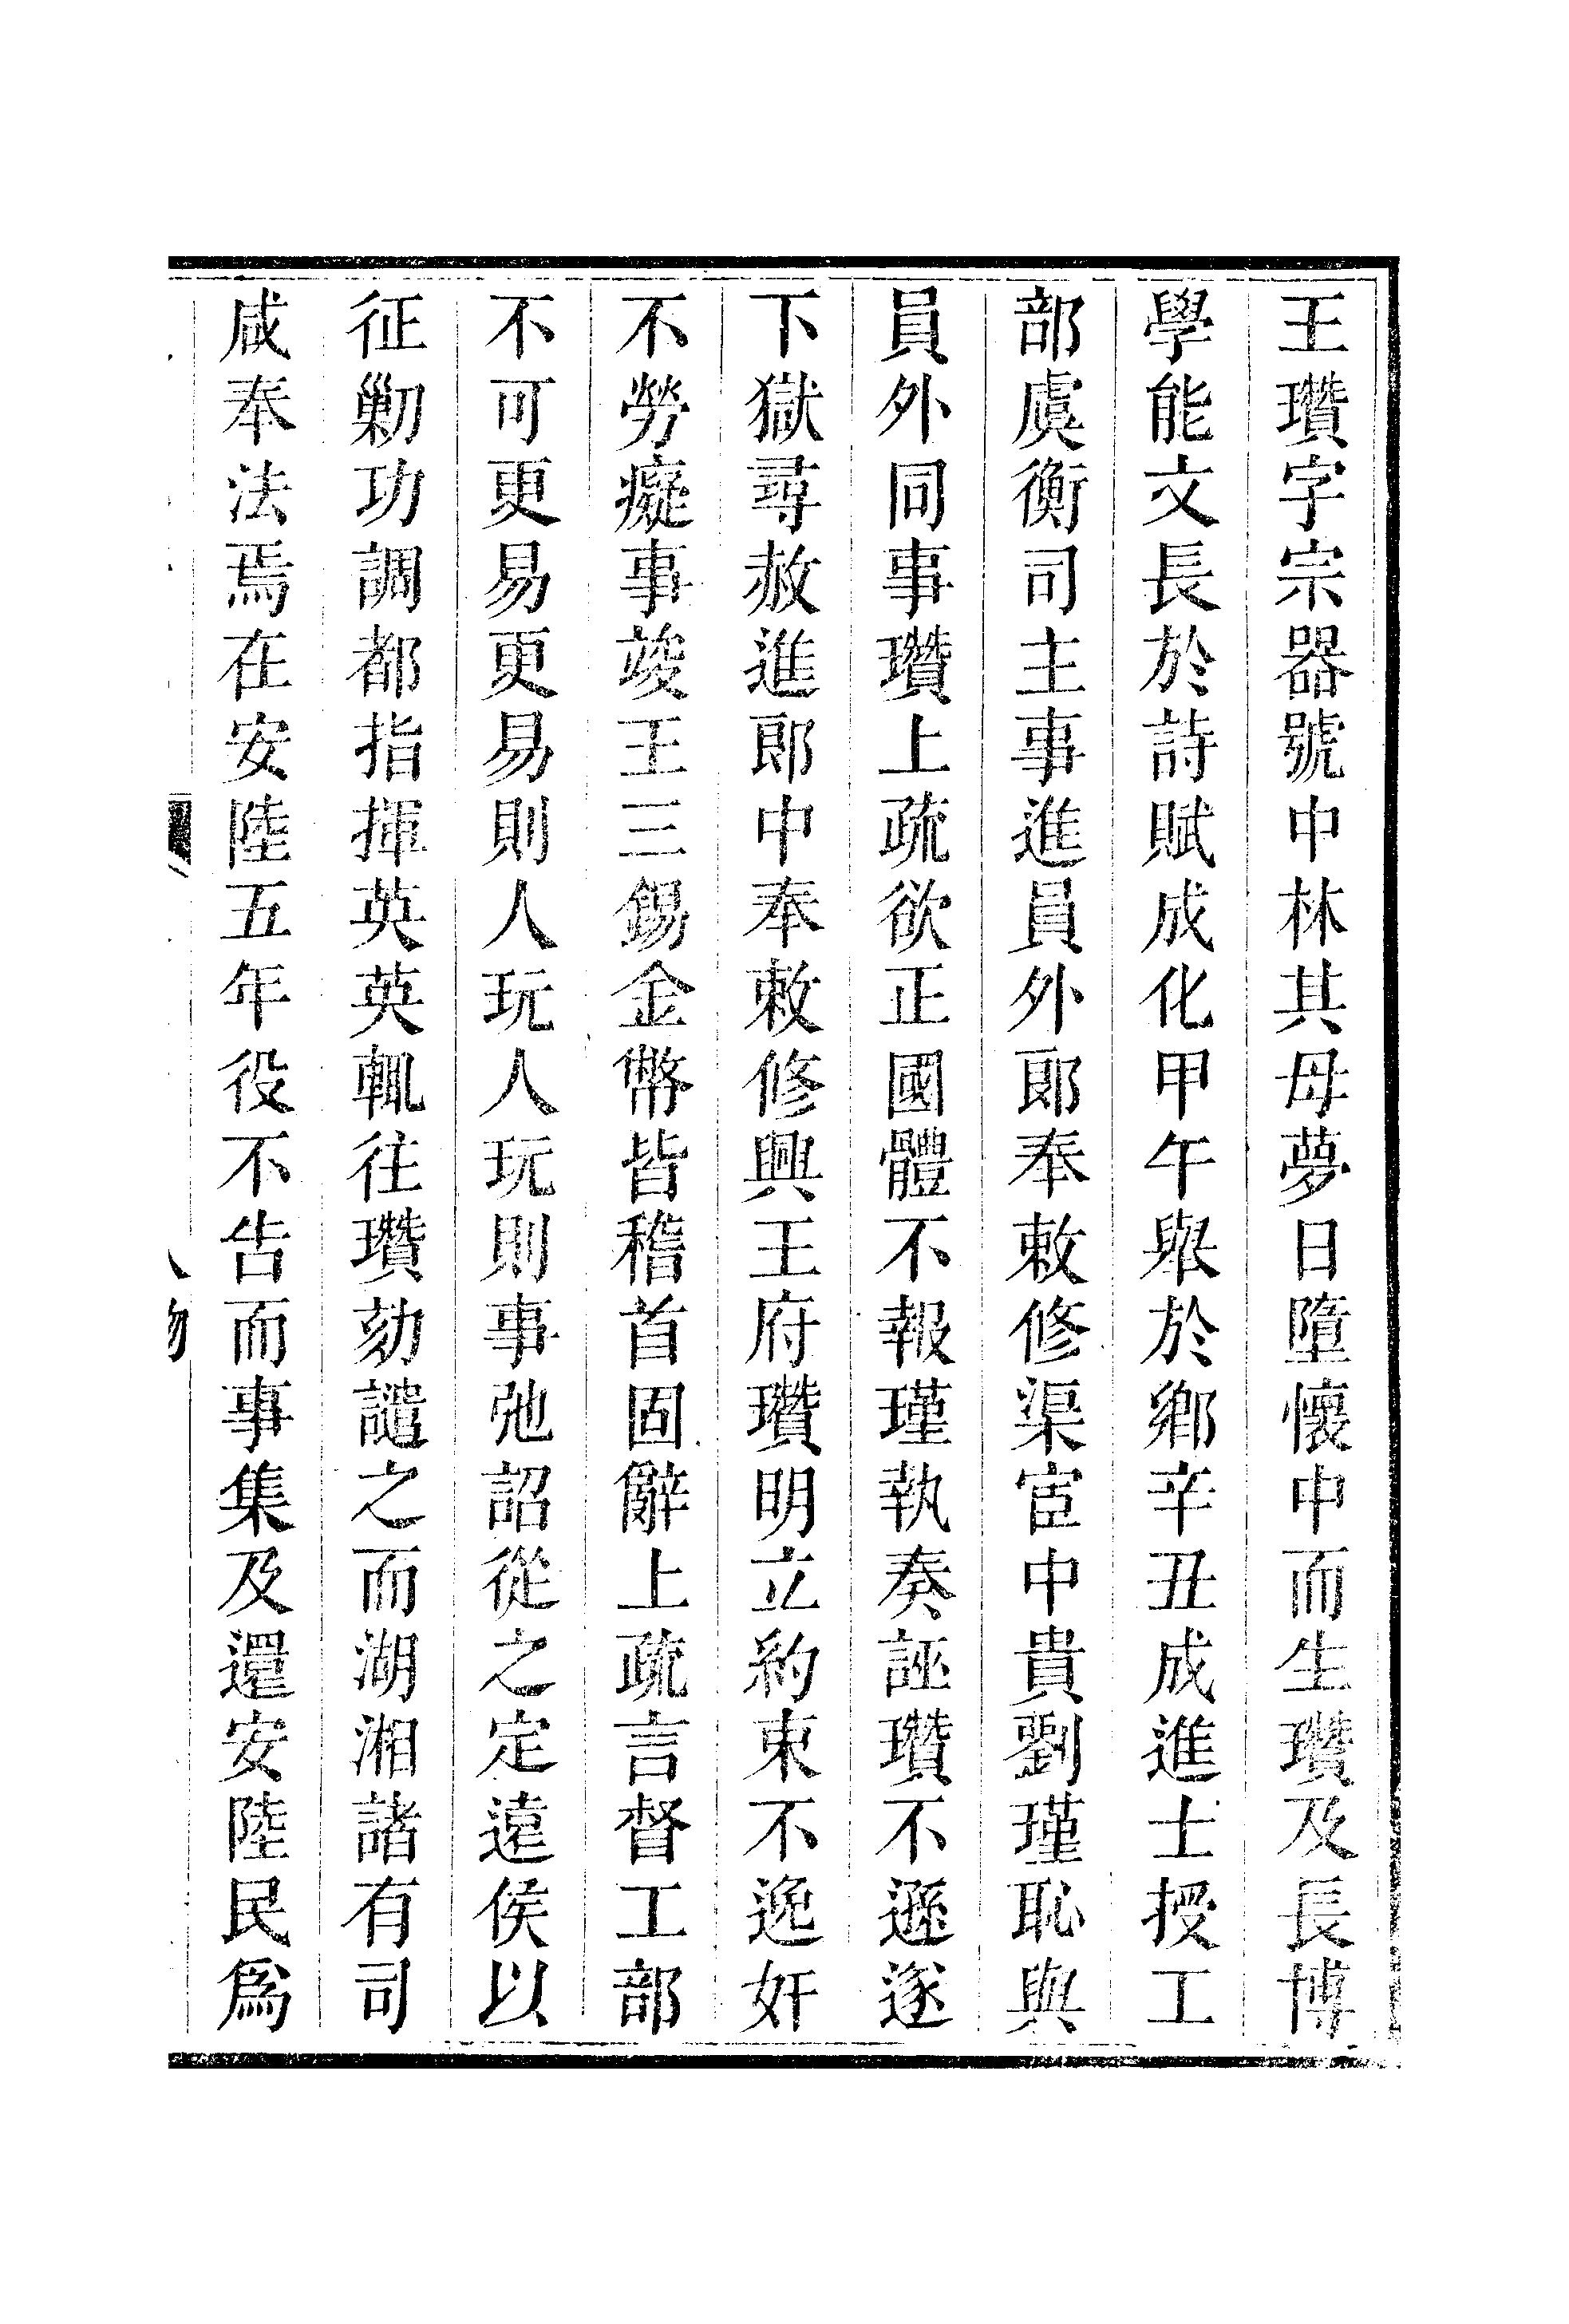 王瓚字宗器號中林其母夢日墮懷中而生瓚及長博
學能文長於詩賦成化甲午舉於鄉辛丑成進士授工
部虞衡司主事進員外郎奉敕修渠宦中貴劉瑾恥與
員外同事瓚上疏欲正國體不報瑾執奏誣瓚不遜遂
下獄尋赦進郎中奉敕修興王府瓚明立約束不逸奸
不勞癡事竣王三錫金幣皆稽首固辭上疏言督工部
不可更易更易則人玩人玩則事弛詔從之定遠侯以
征勦功調都指揮英英輒往瓚劾譴之而湖湘諸有司
咸奉法焉在安陸五年役不告而事集及還安陸民爲